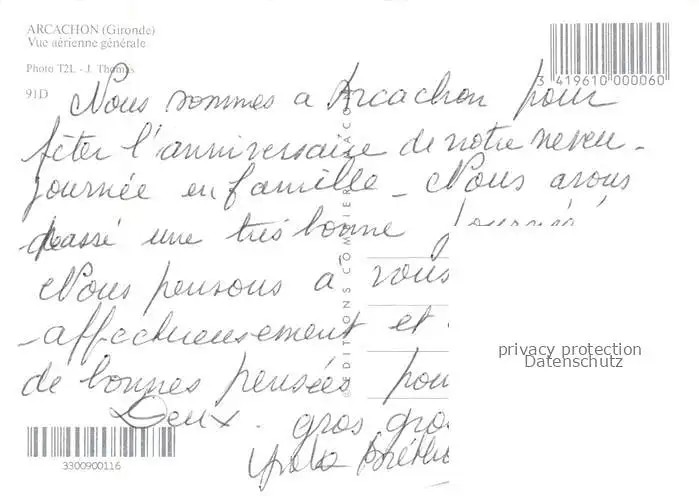 ARCACHON (Gironde)
Vue aérienne générale
Photo T2L - J. Thomas
91D
3 419610 000060
Nous sommes a Arcachon pour
fêter l'anniversaire de notre neveu -
journée en famille - Nous avons
passé une très bonne journée
Nous pensons à vous
affectueusement et
de bonnes pensées pou
Deux. gros gros
© EDITIONS COMBIER MACON
privacy protection
Datenschutz
3300900116